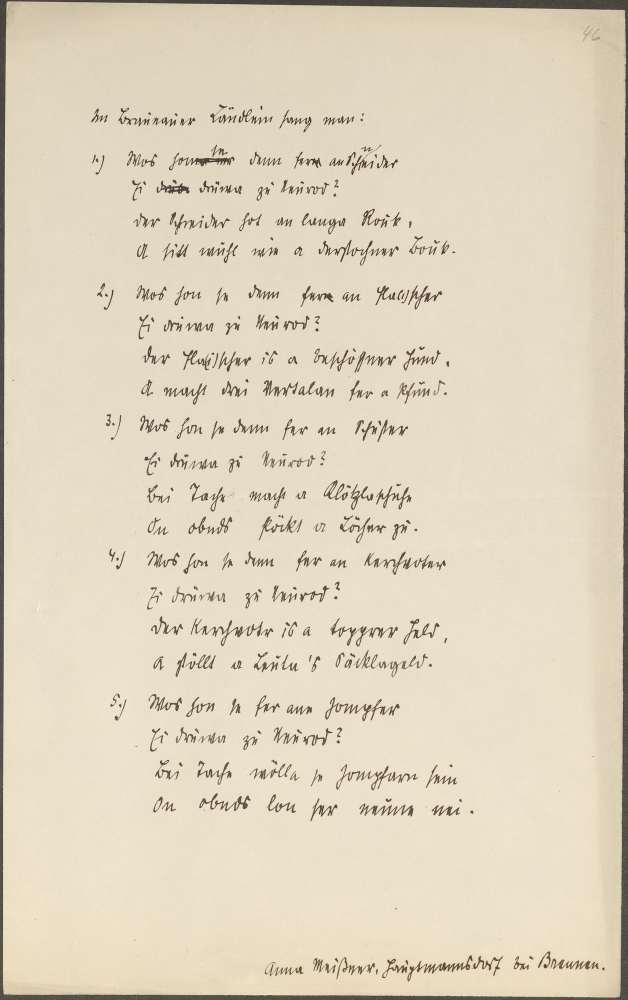 46
Im Braunauer Ländlein sang man:
1.) Wos hon se denn fer an Schneider
Ei drüwa zu Neurod?
Der Schneider hot an langa Rouk,
A sitt wuhl wie a derstochner Bouk.
2.) Wos hon se denn fer an Fla(i)scher
Ei drüwa zu Neurod?
Der Fla(i)scher is a beschössner Hund,
A macht drei Vertalan fer a Pfund.
3.) Wos hon se denn fer an Schuster
Ei drüwa zu Neurod?
Bei Tache macht a Klötzlaschuhe
On obnds stöckt a Löcher zu.
4.) Wos hon se denn fer an Kerchvoter
Ei drüwa zu Neurod?
Der Kerchvotr is a toppрer Held,
A stöllt a Leuta's Säcklageld.
5.) Wos hon se fer ane Jompfer
Ei drüwa zu Neurod?
Bei Tache wölla se Jompfarn sein
On obnds lon ser neune nei.
Anna Meißner, Hauptmannsdorf bei Braunau.